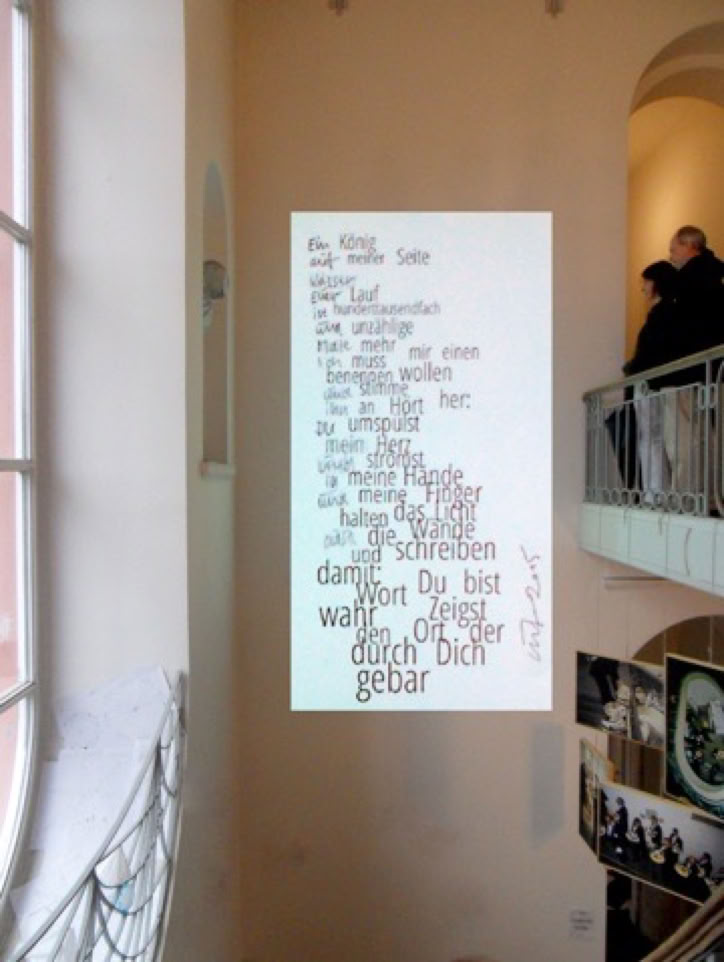 Ein König
auf meiner Seite
Wasser
euer Lauf
ist hunderttausendfach
und unzählige
Male mehr
Ich muss mir einen
benennen wollen
und stimme
ihn an Hört her:
Du umspülst
mein Herz
und strömst
in meine Hände
und meine Finger
halten das Licht
an die Wände
und schreiben
damit:
Wort Du bist
wahr Zeigst
den Ort der
durch Dich
gebar
2015